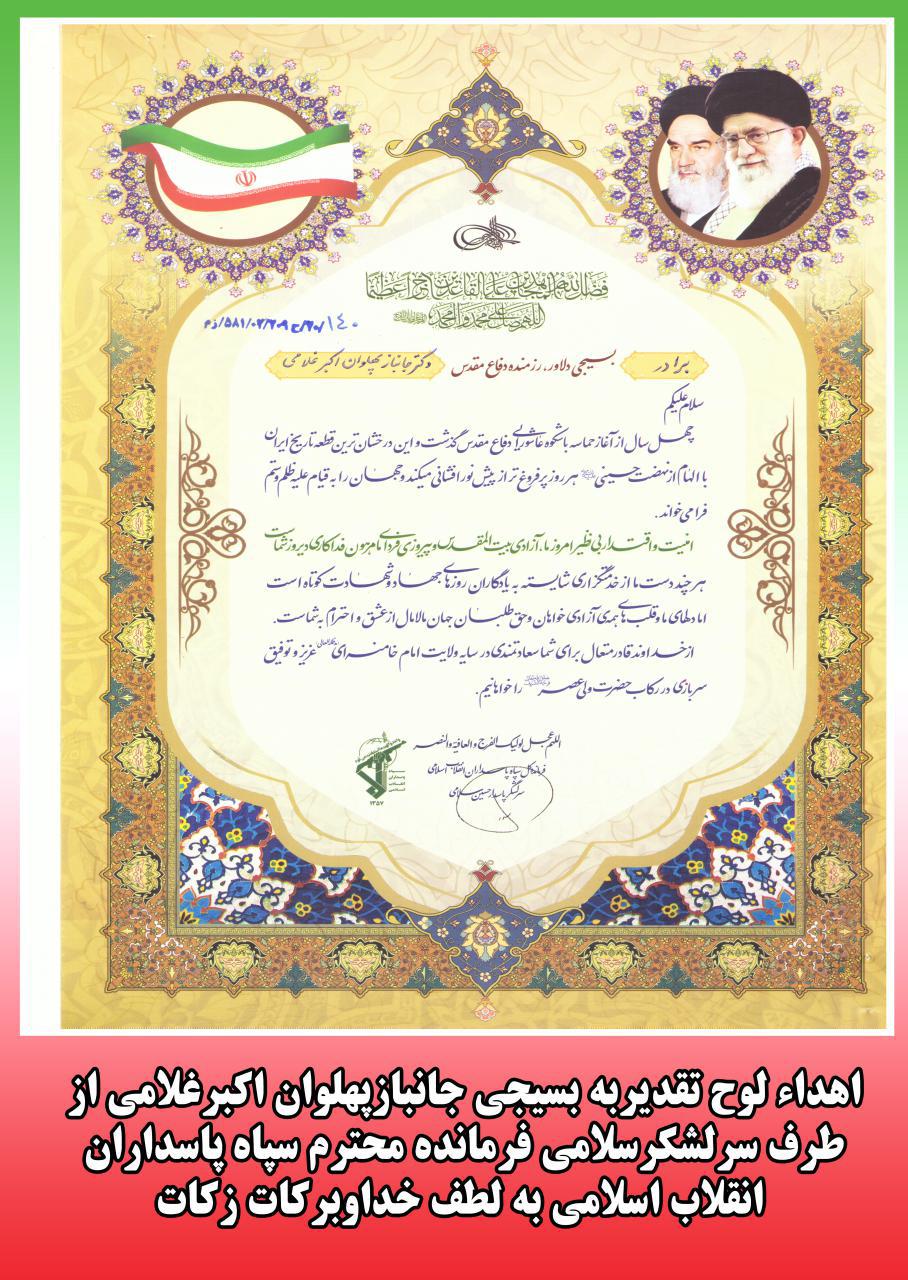 فضل الله المجاهدین علی القاعدین اجراً عظیما
اللهم صل علی محمد و آل محمد
۱۴۰
برادر بسیجی دلاور، رزمنده دفاع مقدس دکتر جانباز پهلوان اکبر غلامی
سلام علیکم
چهل سال از آغاز حماسه باشکوه عاشورایی دفاع مقدس گذشت و این درخشان ترین قطعه تاریخ ایران
با الهام از نهضت حسینی هر روز پرفروغ تر از پیش نورافشانی میکند و جهان را به قیام علیه ظلم و ستم
فرا می خواند.
امنیت و اقتدار بی نظیر امروز ما، آزادی بیت المقدس و پیروزی فردای ما مرهون فداکاری دیروز شماست
هر چند دست ما از خدمتگزاری شایسته به یادگاران روزهای جهاد و شهادت کوتاه است
اما دلهای ما و قلب های همه ی آزادی خواهان و حق طلبان جهان مالامال از عشق و احترام به شماست.
از خداوند قادر متعال برای شما سعادتمندی در سایه ولایت امام خامنه ای عزیز و توفیق
سربازی در رکاب حضرت ولی عصر را خواهانیم.
اللهم عجل لولیک الفرج والعافیة والنصر
فرمانده کل سپاه پاسداران انقلاب اسلامی
سرلشگر پاسدار حسین سلامی
سپاه
پاسداران
انقلاب
اسلامی
۱۳۵۷
اهداء لوح تقدیربه بسیجی جانبازپهلوان اکبرغلامی از
طرف سرلشکرسلامی فرمانده محترم سپاه پاسداران
انقلاب اسلامی به لطف خداوبرکات زکات